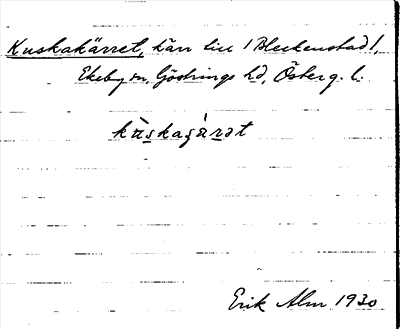 Kuskakärret, kärr till 1 Bleckenstad 1,
Ekeby sn, Göstrings hd, Österg. l.
kùskaçä̀rət
Erik Alm 1930